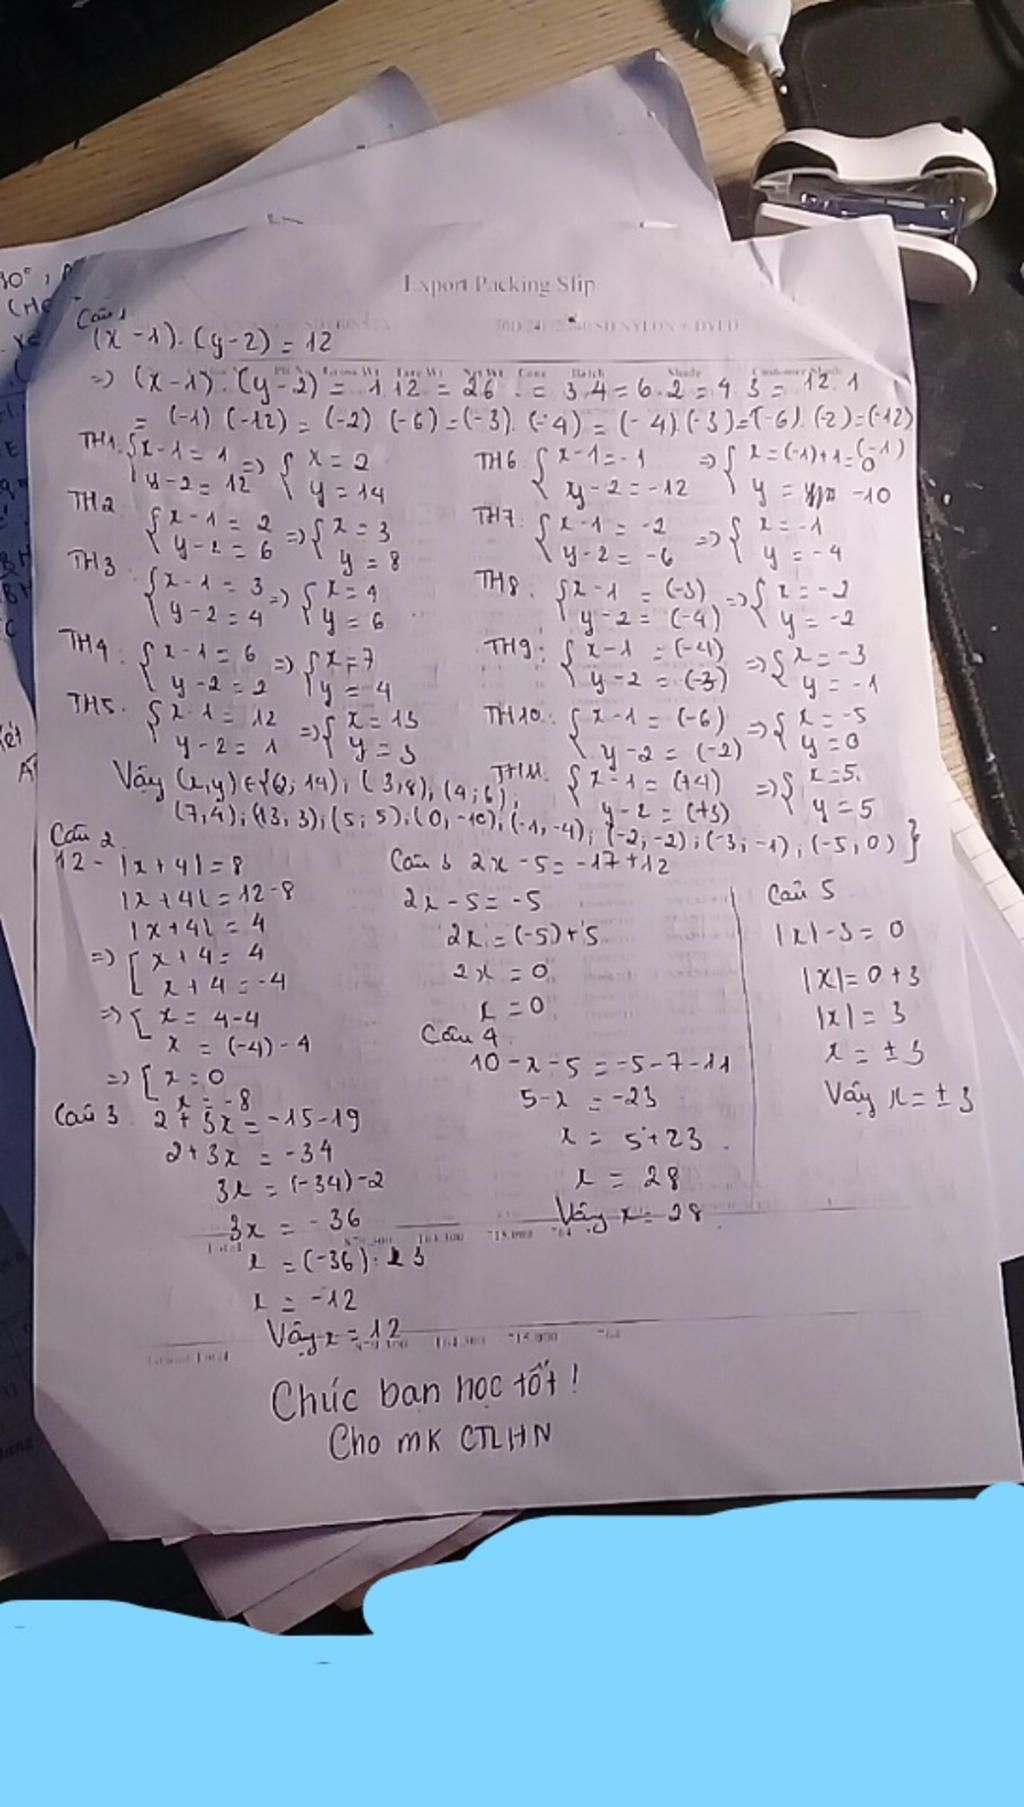 Export Packing Slip
Câu 1
(x-1).(y-2)=12
=> (x-1).(y-2) = 1.12 = 2.6 = 3.4 = 6.2 = 4.3 = 12.1
= (-1) (-12) = (-2) (-6) = (-3).(-4) = (-4).(-3) = (-6).(-2) = (-12)
(-1)
TH1. { x-1=1 => { x=2
y-2=12 y=14
TH2 { x-1=2 => { x=3
y-2=6 y=8
TH3 { x-1=3 => { x=4
y-2=4 y=6
TH4. { x-1=6 => { x=7
y-2=2 y=4
TH5. { x-1=12 => { x=13
y-2=1 y=3
TH6 { x-1=-1 => { x=(-1)+1=0
y-2=-12 y= -10
TH7. { x-1=-2 => { x=-1
y-2=-6 y=-4
TH8. { x-1=(-3) => { x=-2
y-2=(-4) y=-2
TH9: { x-1=(-4) => { x=-3
y-2=(-3) y=-1
TH10: { x-1=(-6) => { x=-5
y-2=(-2) y=0
TH11. { x-1=(+4) => { x=5.
y-2=(+3) y=5
Vậy (x,y) ∈ {(2; 14); (3,8), (4;6),
(7,4); (13,3); (5;5), (0,-10); (-1,-4); (-2;-2); (-3;-1), (-5,0)}
Câu 2
12-|x+4|=8
|x+4|=12-8
|x+4|=4
=> [ x+4=4
x+4=-4
=> [ x=4-4
x=(-4)-4
=> [ x=0
x=-8
Câu 3. 2+3x=-15-19
2+3x=-34
3x=(-34)-2
3x=-36
x=(-36):3
x=-12
Vậy x=12
Câu 3 2x-5=-17+12
2x-5=-5
2x=(-5)+5
2x=0
x=0
Câu 4.
10-x-5=-5-7-11
5-x=-23
x=5+23
x=28
Vậy x=28
Câu 5
|x|-3=0
|x|=0+3
|x|=3
x=±3
Vậy x=±3
Chúc bạn học tốt!
Cho mk CTLHN